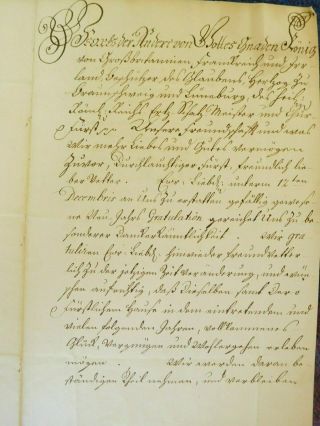 Georg der Andere von Gottes Gnaden König
von Großbritannien, Franckreich und Irr-
land, Beschützer des Glaubens, Hertzog zu
Braunschweig und Lüneburg, des Heil.
Röm. Reichs Ertz-Schatz-Meister und Chur-
Fürst. Unsere Freundschafft und was
Wir mehr Liebes und Gutes vermögen
zuvor, Durchlauchtiger Fürst, freundlich lie-
ber Vetter. Eur. Liebd. unterm 12ten
Decembris an Uns zu erstatten gefällig gewese-
ne Neu Jahrs Gratulation gereichet Uns zu be-
sonderer Danckerkäntlichkeit Wir gra-
tuliren Eur. Liebd. hinwieder freund Vetter-
lich zu der jetzigen Zeit veränderung, und wün-
schen aufrichtig, daß Dieselben samt Dero
Fürstlichem Hause in dem eintretenden und
vielen folgenden Jahren, vollkommenes
Glück, Vergnügen und Wohlergehen erleben
mögen. Wir werden daran be-
ständigen Theil nehmen, und verbleiben